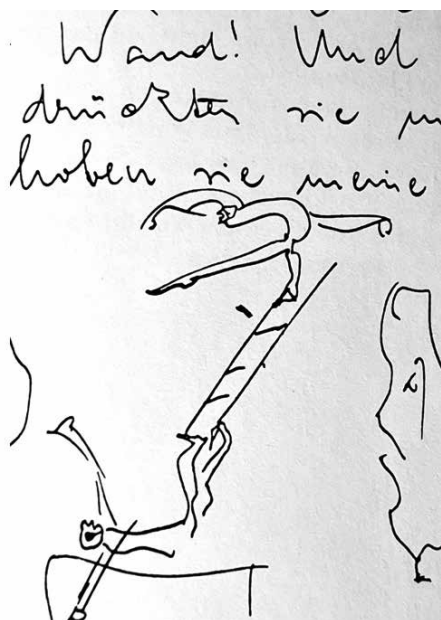 Wand! Und
drückten sie m
hoben sie meine